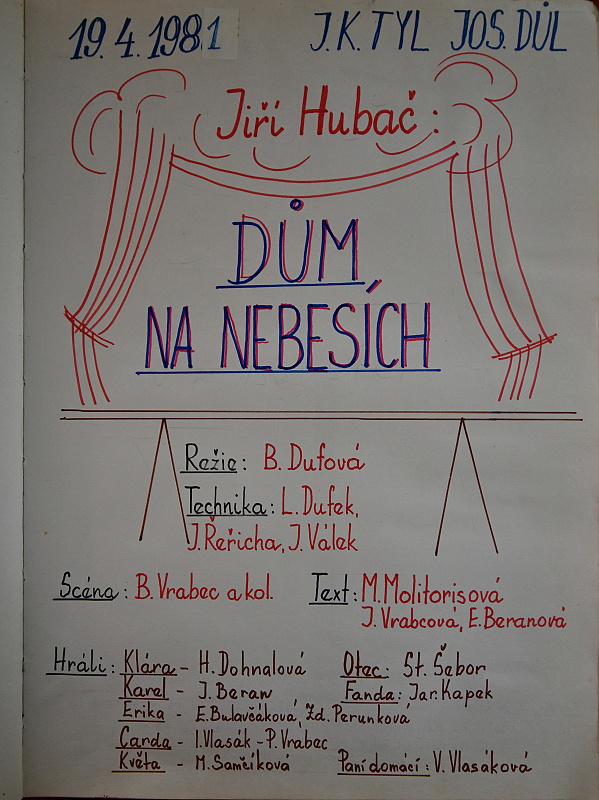 19.4.1981 J.K.TYL JOS.DŮL
Jiří Hubač:
DŮM
NA NEBESÍCH
Režie: B. Dufová
Technika: L. Dufek,
J. Řeřicha, J. Válek
Scéna: B. Vrabec a kol. Text: M. Molitorisová
J. Vrabcová, E. Beranová
Hráli: Klára - H. Dohnalová Otec: St. Šebor
Karel - J. Beran Fanda: Jar. Kapek
Erika - E. Bulavčáková, Zd. Perunková
Čarda - I. Vlasák - P. Vrabec
Květa - M. Samčíková Paní domácí: V. Vlasáková